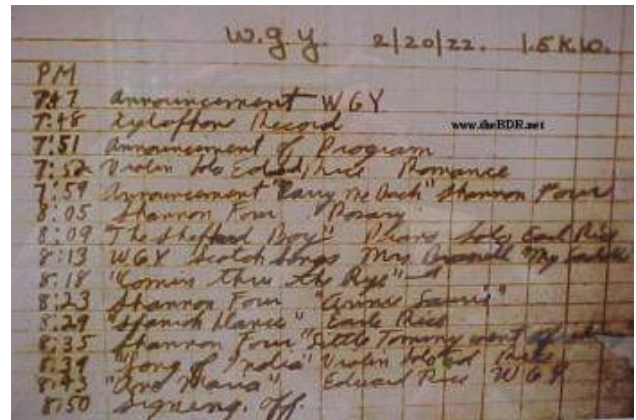 W.G.Y. 2/20/22. 1.5 K.W.
PM
7:47 Announcement WGY
7:48 Xylophon Record
www.theBDR.net
7:51 Announcement of Program
7:52 Violin Solo Edward Rice Romance
7:59 Announcement "Carry Me Back" Shannon Four
8:05 Shannon Four Rosary
8:09 "The Shepherd Boy" Piano Solo Earl Rice
8:13 WGY Scotch Songs Mrs. "My
8:18 "Comin thru the Rye"
8:23 Shannon Four
8:29 "Spanish Dance" Earle Rice
8:35 Shannon Four "Little Tommy went
8:39 "Song of India" Violin Solo Ed Rice
8:43 "Ave Maria" Edward Rice WGY
8:50 Signing off.